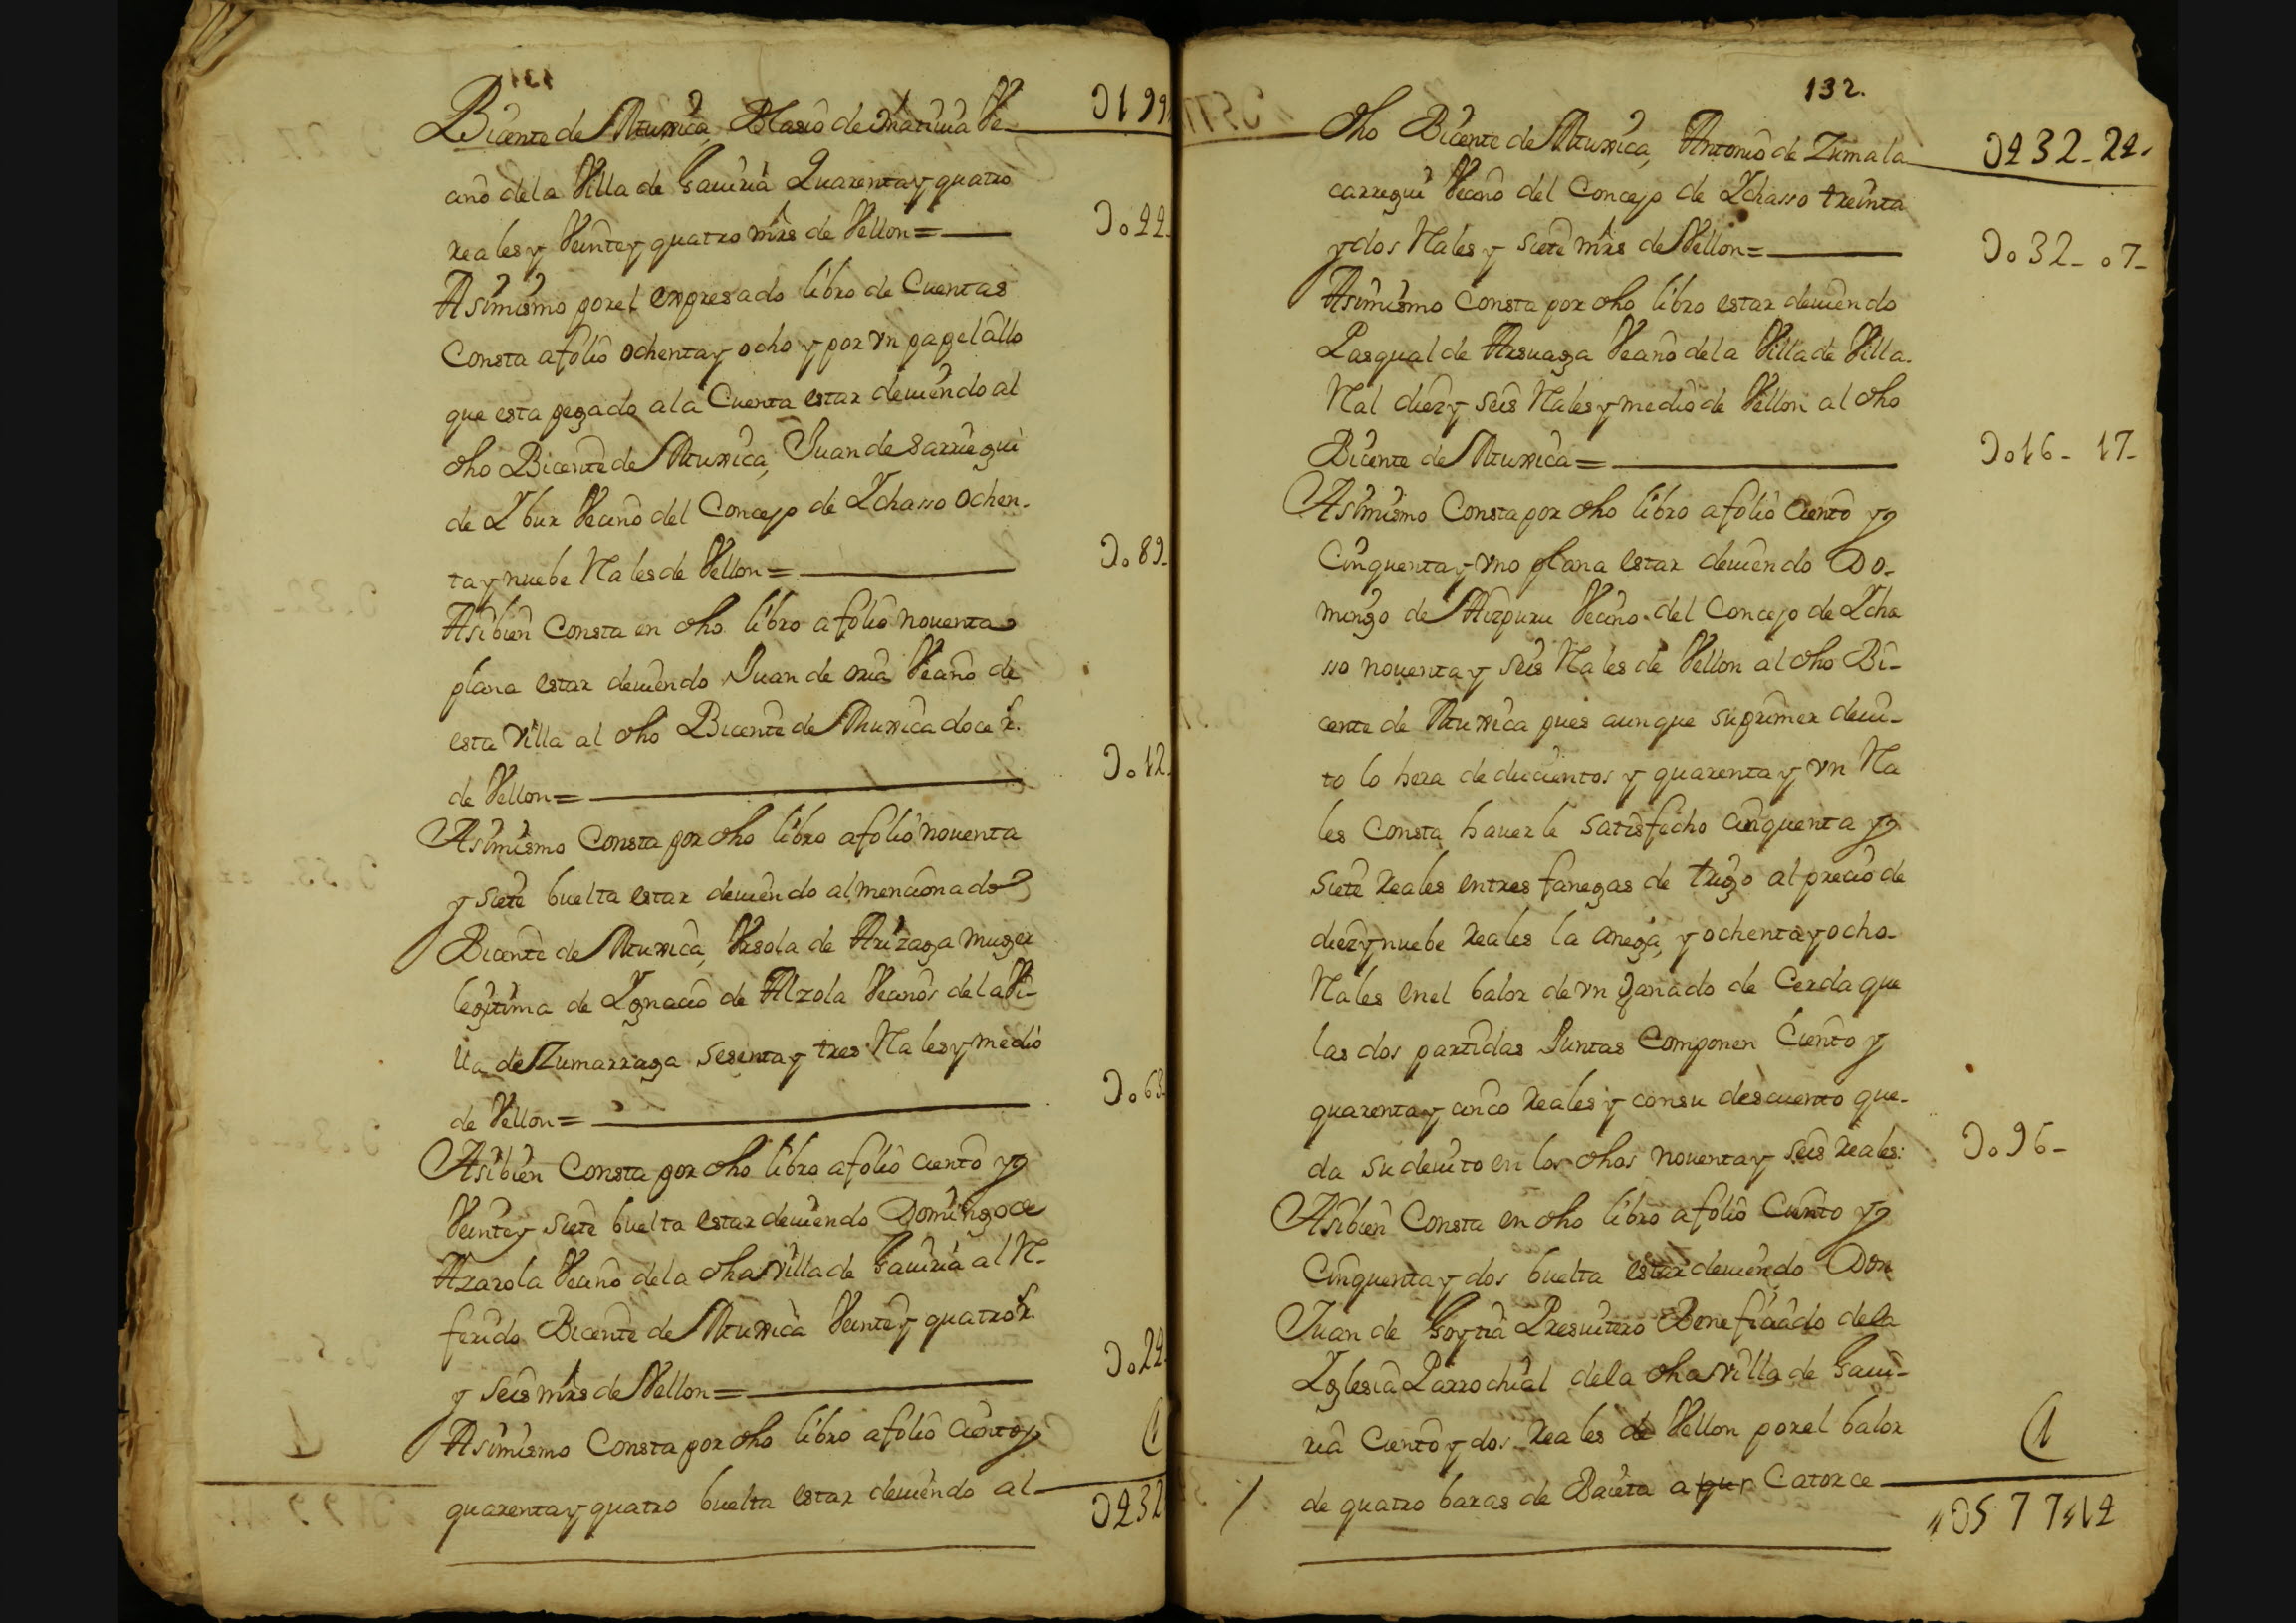 Bicente de Mturrica, Blasio de Vnanuia Ve-
cino dela Villa de Gauiria Quarenta y quatro
reales y Veinte y quatro mrs de Vellon=
Asimismo por el expresado libro de Cuentas
Consta a folio ochenta y ocho y por vn papel allo
que esta pegado ala Cuenta estar deuiendo al
dho Bicente de Mturrica, Juan de Sarriegui
de Ybur Vecino del Concejo de Ychasso ochen-
ta y nuebe Rales de Vellon=
Asibien Consta en dho libro a folio nouenta
plana estar deuiendo Juan de oria Vecino de
esta Villa al dho Bicente de Mturrica doce r.
de Vellon=
Asimismo Consta por dho libro a folio nouenta
y siete buelta estar deuiendo al mencionado
Bicente de Mturrica, Vrsola de Arizaga muger
legitima de Ygnacio de Alzola Vecinos dela Vi-
lla de Zumarraga sesenta y tres Rales y medio
de Vellon=
Asibien Consta por dho libro a folio ciento y
Veinte y siete buelta estar deuiendo Domingo de
Azarola Vecino dela dha Villa de Gauiria al R-
ferido Bicente de Mturrica Veinte y quatro r.
y seis mrs de Vellon=
Asimismo Consta por dho libro a folio Ciento y
quarenta y quatro buelta estar deuiendo al
0199
0o44
0o89
0o12
0o63
0o24
0432
132.
dho Bicente de Mturrica, Antonio de Zumala
carregui Vecino del Concejo de Ychasso treinta
y dos Rales y siete mrs de Vellon=
Asimismo Consta por dho libro estar deuiendo
Pasqual de Arsuaga Vecino dela Villa de Villa-
Ral diez y seis Rales y medio de Vellon al dho
Bicente de Mturrica=
Asimismo Consta por dho libro a folio Ciento y
Cinquenta y vno plana estar deuiendo Do-
mingo de Aizpuru Vecino del Concejo de Ycha
sso nouenta y seis Rales de Vellon al dho Bi-
cente de Mturrica pues aunque su primer deui-
to lo hera de ducientos y quarenta y vn Ra
les Consta hauerle satisfecho cinquenta y
siete reales en tres fanegas de trigo al precio de
diez y nuebe reales la anega, y ochenta y ocho
Rales en el balor de vn ganado de Cerda que
las dos partidas Juntas Componen Ciento y
quarenta y cinco reales y con su descuento que-
da su deuito en los dhos nouenta y seis reales:
Asibien Consta en dho libro a folio Ciento y
Cinquenta y dos buelta estar deuiendo Don
Juan de Goytia Presuitero Beneficiado dela
Yglesia Parrochial dela dha Villa de Gaui-
ria Ciento y dos reales de Vellon por el balor
de quatro baras de Baieta a Catorce
0432-24.
0o32-o7-
0o16-17-
0o96-
0577,,14